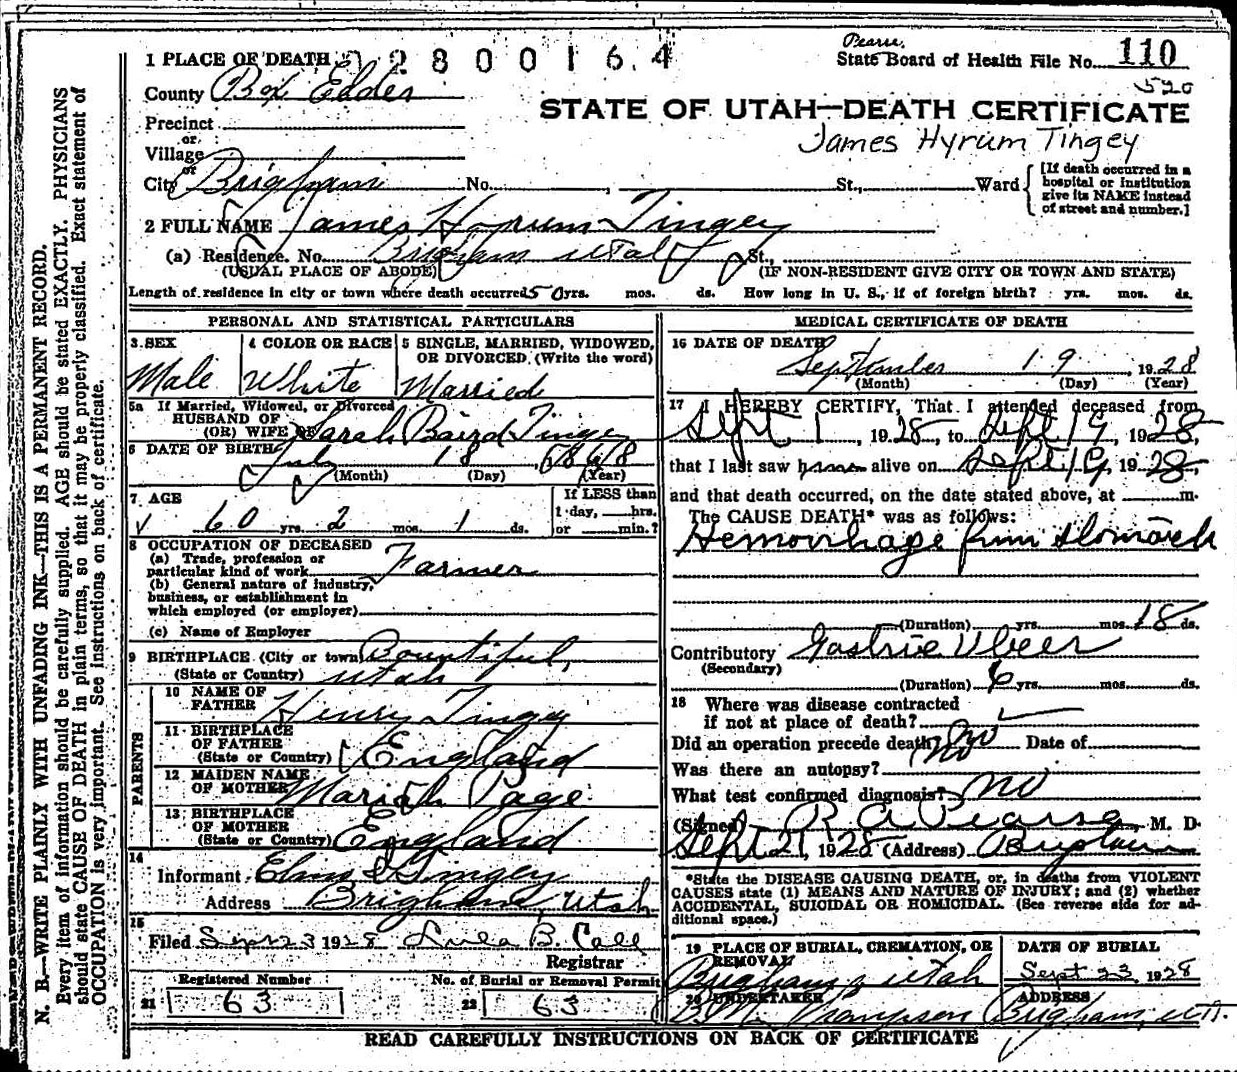 1 PLACE OF DEATH 2 8 0 0 1 6 4
Pearse.
State Board of Health File No. 110
520
County Box Elder
STATE OF UTAH—DEATH CERTIFICATE
Precinct
or
James Hyrum Tingey
Village
or
City Brigham No. , St., Ward
[If death occurred in a hospital or institution give its NAME instead of street and number.]
2 FULL NAME James Hyrum Tingey
(a) Residence. No. Brigham Utah St.,
(USUAL PLACE OF ABODE) (IF NON-RESIDENT GIVE CITY OR TOWN AND STATE)
Length of residence in city or town where death occurred 50 yrs. mos. ds. How long in U. S., if of foreign birth? yrs. mos. ds.
PERSONAL AND STATISTICAL PARTICULARS
3 SEX 4 COLOR OR RACE 5 SINGLE, MARRIED, WIDOWED,
OR DIVORCED. (Write the word)
Male White Married
5a If Married, Widowed, or Divorced
HUSBAND OF
(OR) WIFE OF Sarah Baird Tingey
6 DATE OF BIRTH July 18, 1868
(Month) (Day) (Year)
7 AGE If LESS than
1 day, hrs.
60 yrs. 2 mos. 1 ds. or min.?
8 OCCUPATION OF DECEASED
(a) Trade, profession or
particular kind of work Farmer
(b) General nature of industry,
business, or establishment in
which employed (or employer)
(c) Name of Employer
9 BIRTHPLACE (City or town) Bountiful,
(State or Country) Utah
PARENTS
10 NAME OF
FATHER Henry Tingey
11 BIRTHPLACE
OF FATHER
(State or Country) England
12 MAIDEN NAME
OF MOTHER Mariah Page
13 BIRTHPLACE
OF MOTHER
(State or Country) England
14
Informant Tingey
Address Brigham, Utah
15
Filed Sept 23 1928 Lula B. Call
Registrar
Registered Number No. of Burial or Removal Permit
21 63 22 63
MEDICAL CERTIFICATE OF DEATH
16 DATE OF DEATH
September 19, 1928
(Month) (Day) (Year)
17 I HEREBY CERTIFY, That I attended deceased from
Sept 1, 1928, to Sept 19, 1928,
that I last saw alive on Sept 19, 1928,
and that death occurred, on the date stated above, at m.
The CAUSE DEATH* was as follows:
Hemorrhage from stomach
(Duration) yrs. mos. 18 ds.
Contributory Gastric Ulcer
(Secondary)
(Duration) 6 yrs. mos. ds.
18 Where was disease contracted
if not at place of death?
Did an operation precede death? No Date of
Was there an autopsy? No
What test confirmed diagnosis? no
(Signed) R A Pearse, M. D.
Sept 21, 1928 (Address) Brigham
*State the DISEASE CAUSING DEATH, or, in deaths from VIOLENT
CAUSES state (1) MEANS AND NATURE OF INJURY; and (2) whether
ACCIDENTAL, SUICIDAL OR HOMICIDAL. (See reverse side for ad-
ditional space.)
19 PLACE OF BURIAL, CREMATION, OR REMOVAL DATE OF BURIAL
Brigham, Utah Sept 23, 1928
20 UNDERTAKER ADDRESS
Thompson Brigham, Ut.
READ CAREFULLY INSTRUCTIONS ON BACK OF CERTIFICATE
N. B.—WRITE PLAINLY WITH UNFADING INK—THIS IS A PERMANENT RECORD.
Every item of information should be carefully supplied. AGE should be stated EXACTLY. PHYSICIANS
should state CAUSE OF DEATH in plain terms, so that it may be properly classified. Exact statement of
OCCUPATION is very important. See instructions on back of certificate.